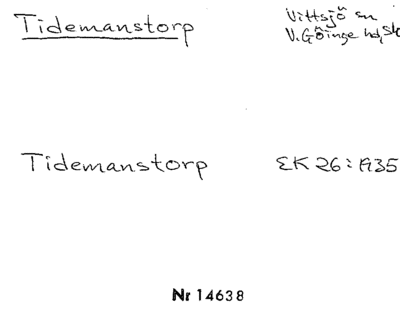 Tidemanstorp
Vittsjö sn
V. Göinge hd, Sk
Tidemanstorp
EK 26:1935
Nr 14638